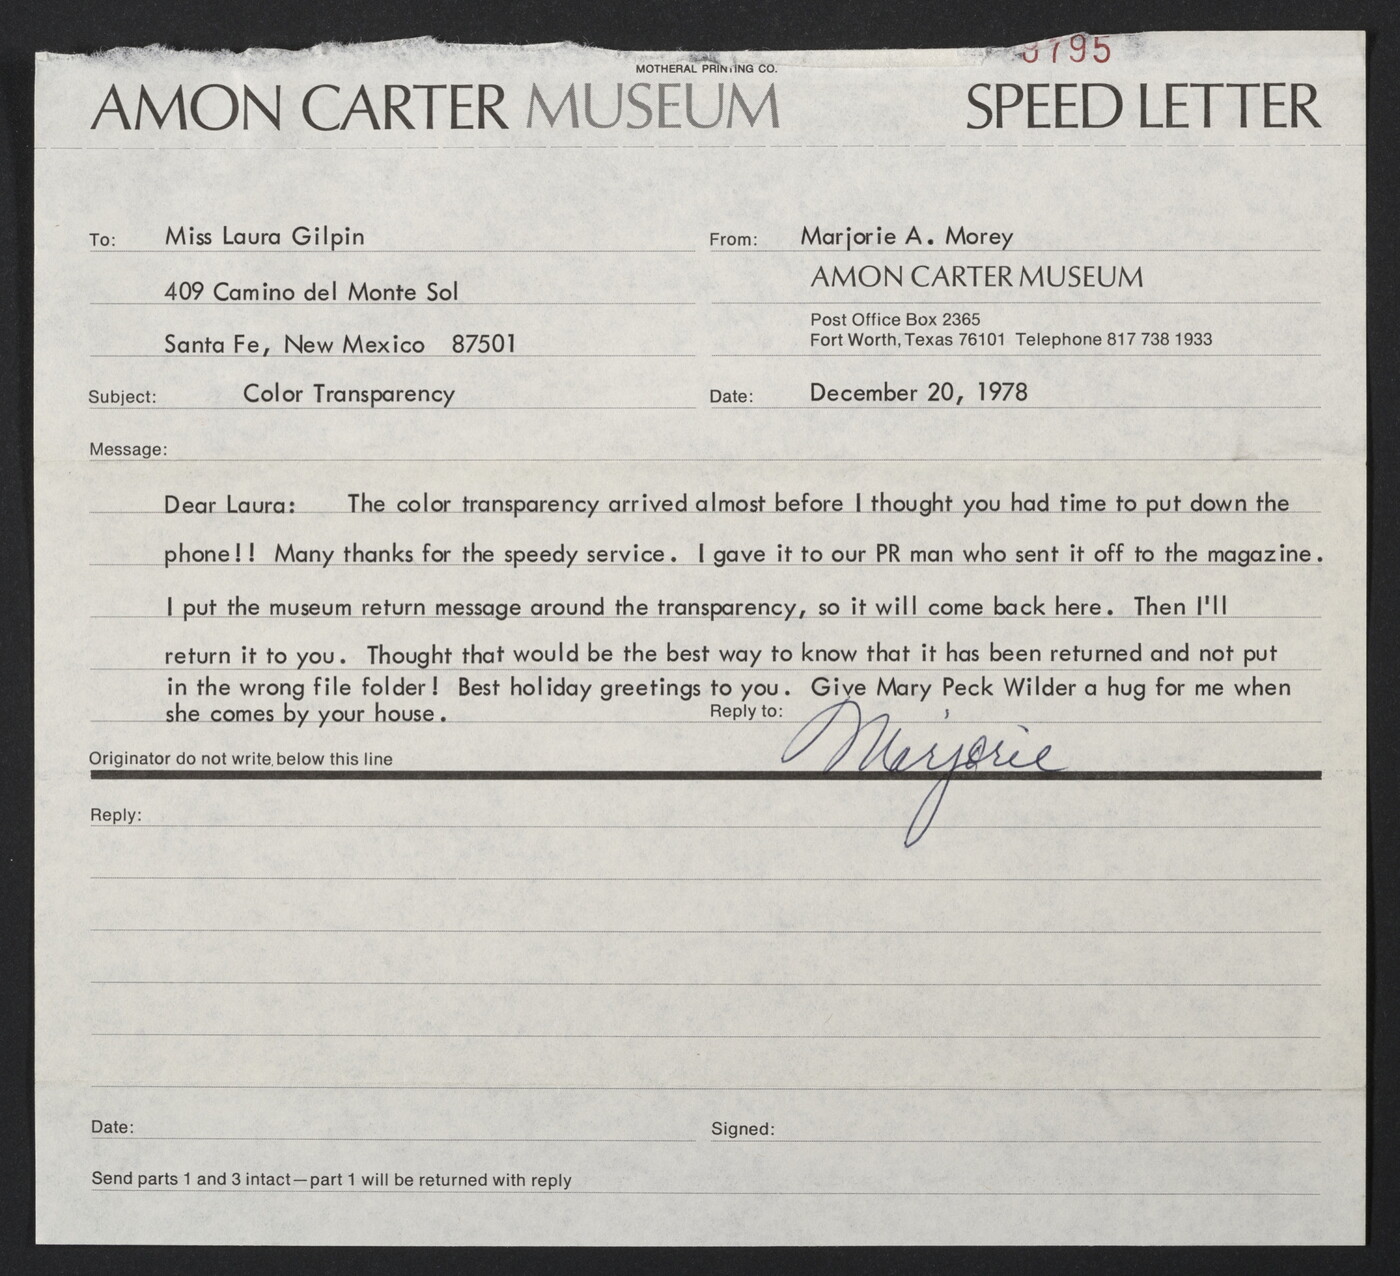 8795
MOTHERAL PRINTING CO.
AMON CARTER MUSEUM SPEED LETTER
To: Miss Laura Gilpin From: Marjorie A. Morey
409 Camino del Monte Sol AMON CARTER MUSEUM
Post Office Box 2365
Santa Fe, New Mexico 87501 Fort Worth, Texas 76101 Telephone 817 738 1933
Subject: Color Transparency Date: December 20, 1978
Message:
Dear Laura: The color transparency arrived almost before I thought you had time to put down the
phone!! Many thanks for the speedy service. I gave it to our PR man who sent it off to the magazine.
I put the museum return message around the transparency, so it will come back here. Then I'll
return it to you. Thought that would be the best way to know that it has been returned and not put
in the wrong file folder! Best holiday greetings to you. Give Mary Peck Wilder a hug for me when
she comes by your house. Reply to: Marjorie
Originator do not write below this line
Reply:
Date: Signed:
Send parts 1 and 3 intact—part 1 will be returned with reply